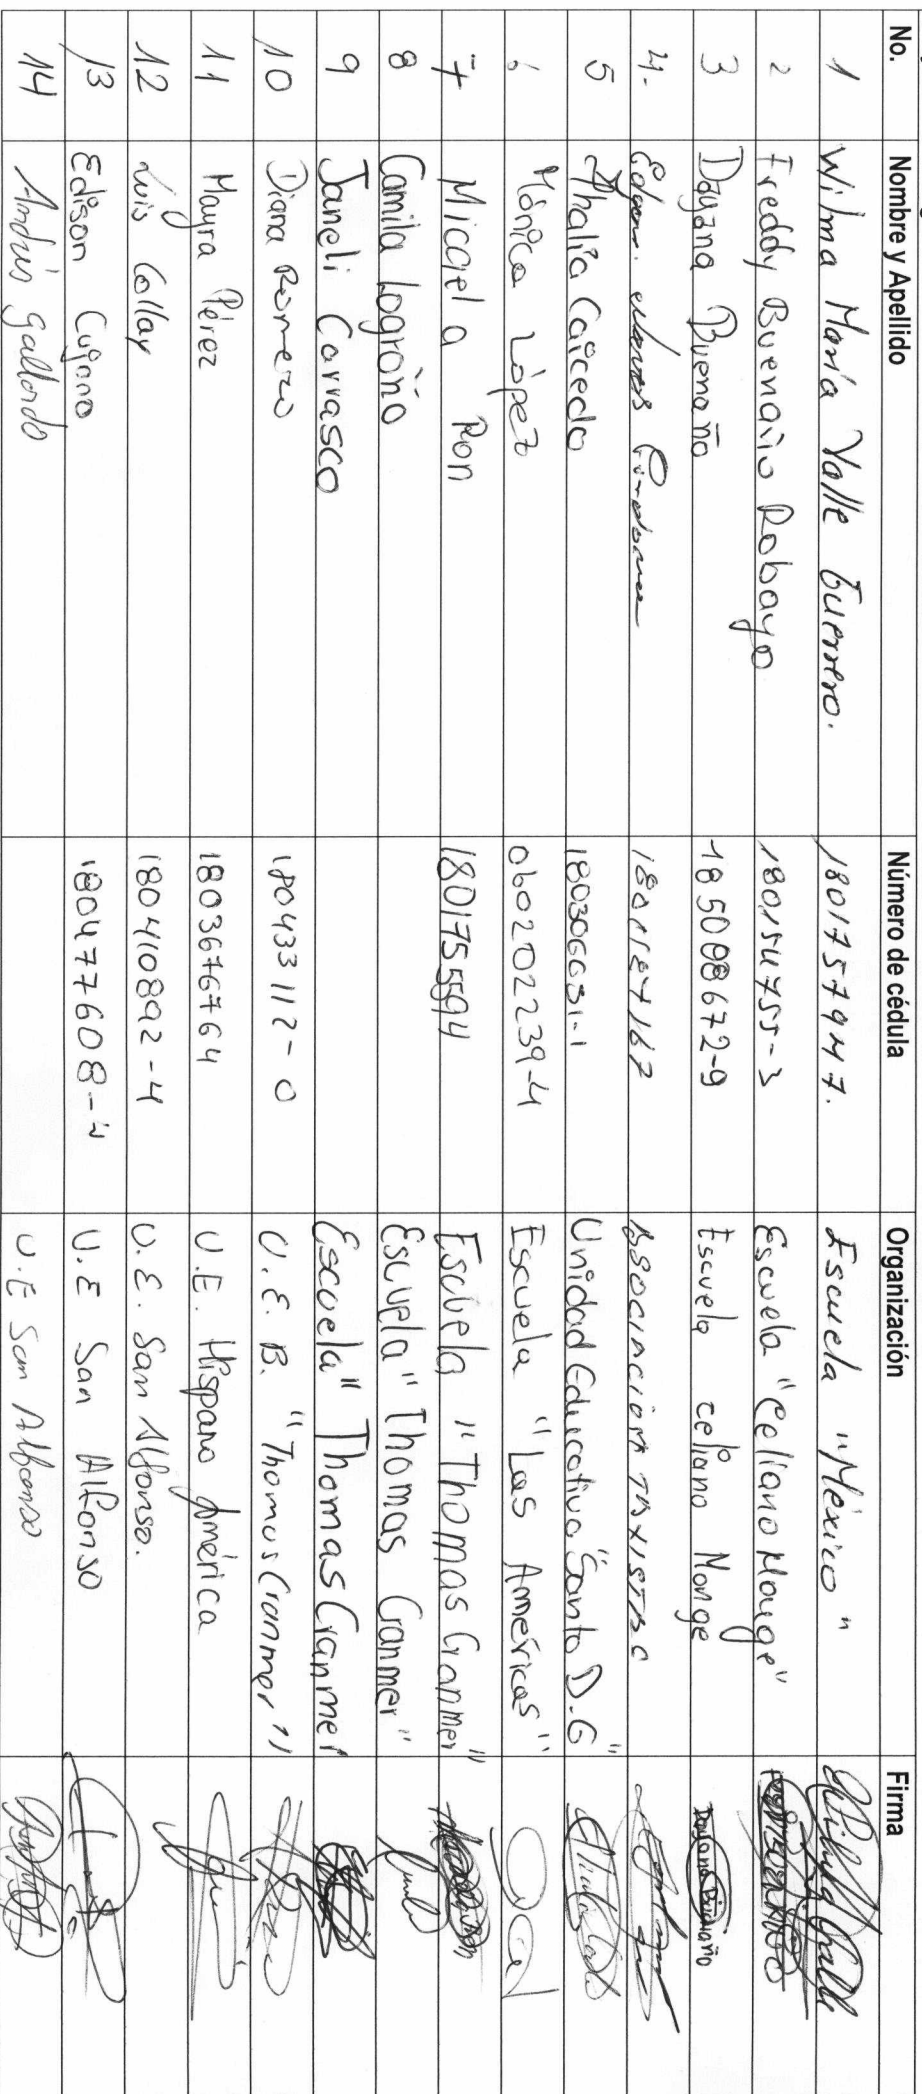 No. Nombre y Apellido Número de cédula Organización Firma
1 Wilma María Valle Guerrero. 1801757947. Escuela "México"
2 Freddy Buenaño Robayo 180154755-3 Escuela "Celiano Monge"
3 Dayana Buenaño 185008672-9 Escuela celiano Monge Dayana Buenaño
4. Edgar ASOCIACION TAXISTAS
5 Athalia Caicedo 180306631-1 Unidad Educativa "Santo D.G"
6 Mónica López 060202239-4 Escuela "Las Américas"
7 Micaela Ron 1801755594 Escuela "Thomas Cranmer"
8 Camila Logroño Escuela "Thomas Cranmer"
9 Janeli Carrasco Escuela "Thomas Cranmer
10 Diana Romero 180433112-0 U.E.B. "Thomas Cranmer"
11 Mayra Pérez 1803676764 U.E. Hispano América
12 Luis Collay 180410892-4 U.E. San Alfonso.
13 Edison Cujano 180477608-4 U.E San Alfonso
14 Andrés Gallardo U.E San Alfonso